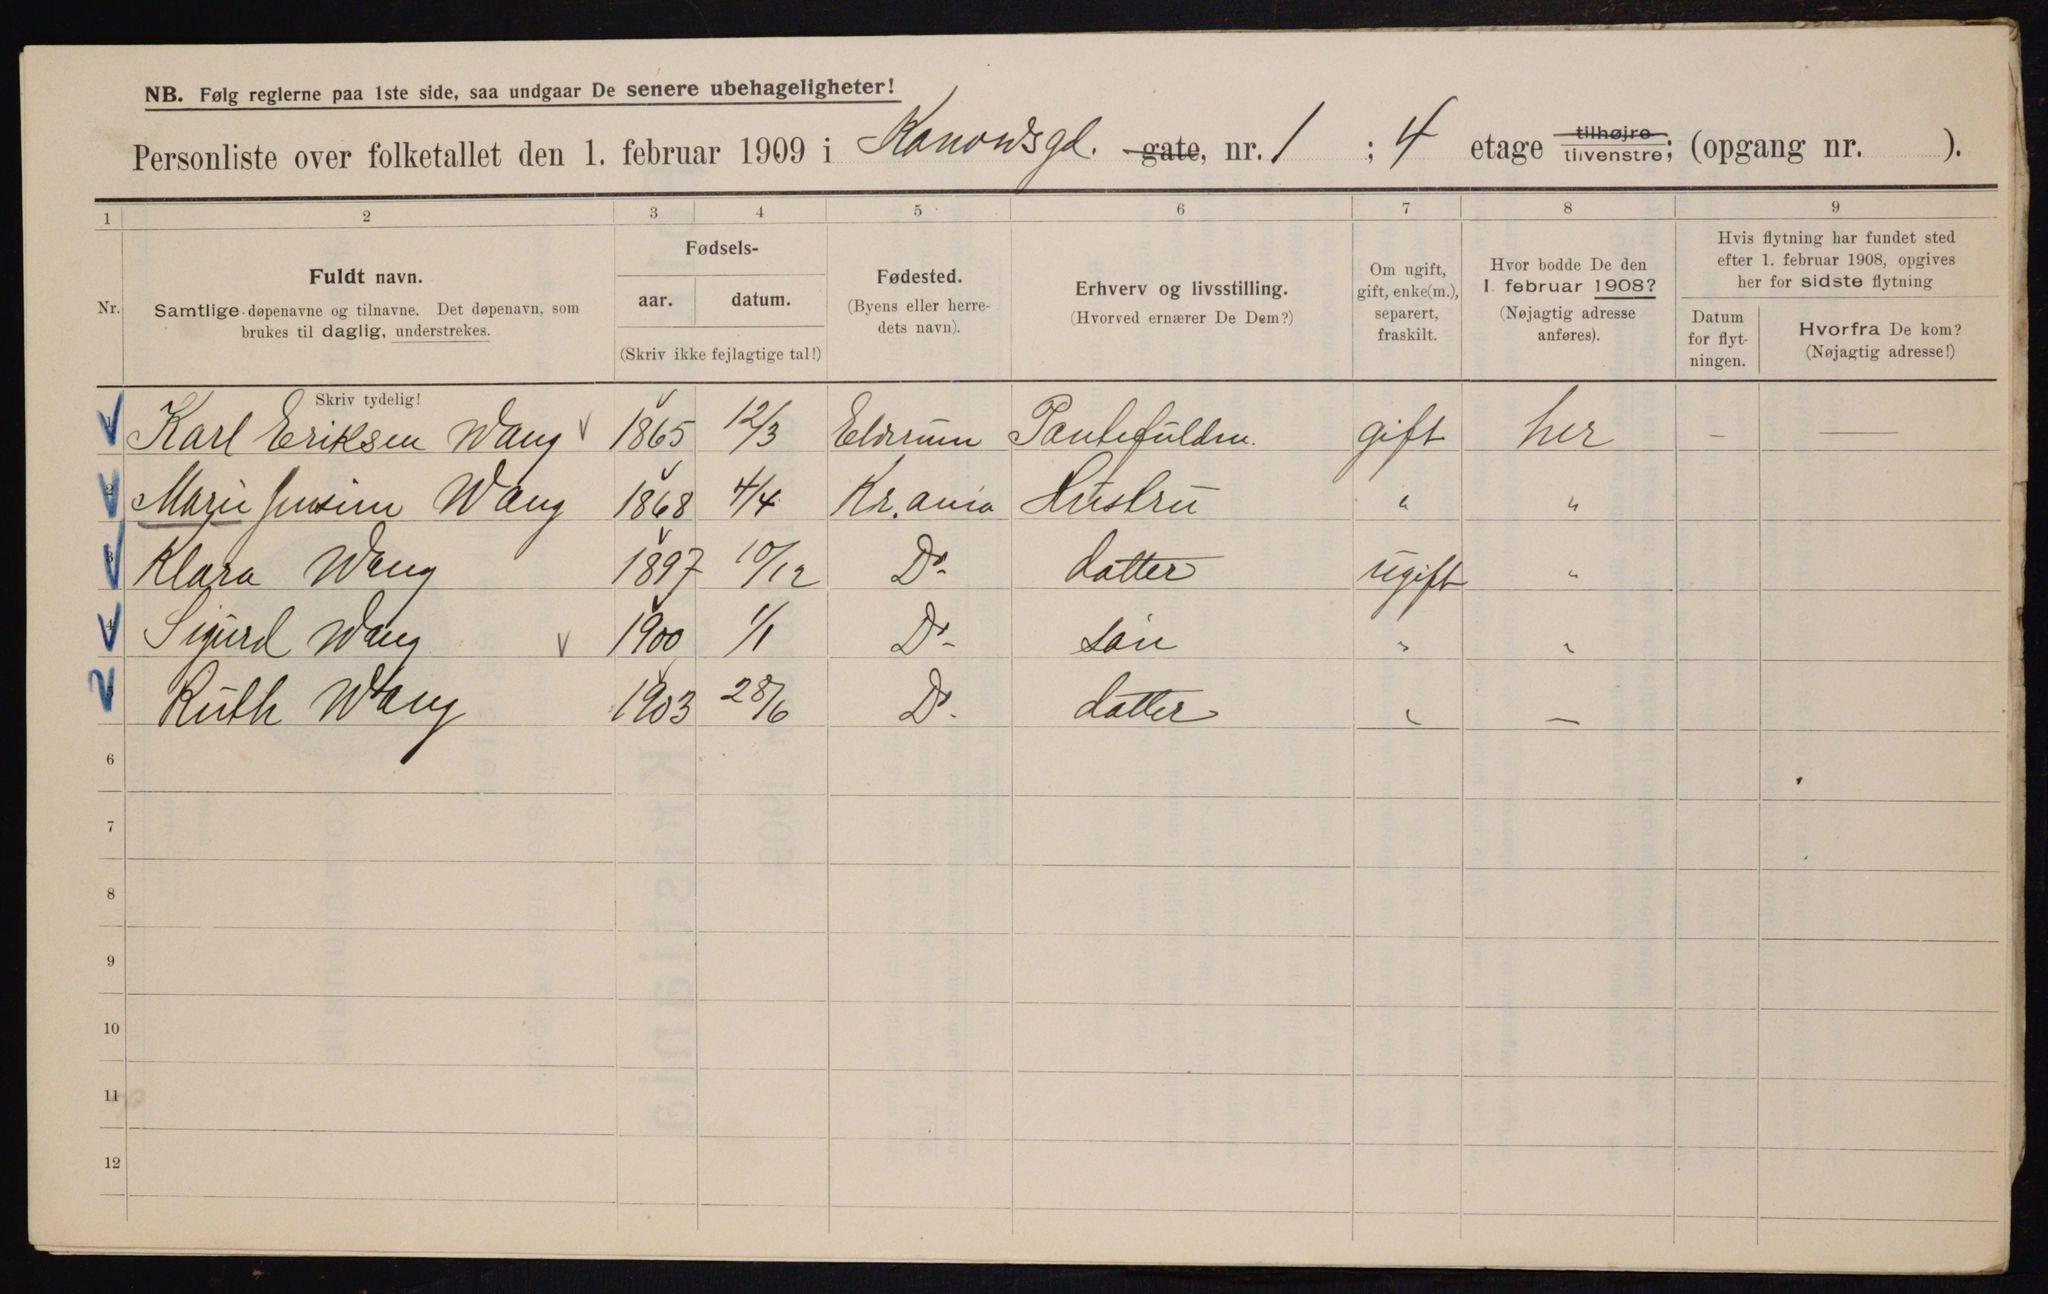 NB. Følg reglerne paa 1ste side, saa undgaar De senere ubehageligheter!
Personliste over folketallet den 1. februar 1909 i Kanowsgd. gate, nr. 1 ; 4 etage tilhøjre tilvenstre; (opgang nr. ).
1 2 3 4 5 6 7 8 9
Nr. Fuldt navn. Samtlige døpenavne og tilnavne. Det døpenavn, som brukes til daglig, understrekes.
Fødsels- aar. datum. (Skriv ikke fejlagtige tal!)
Fødested. (Byens eller herredets navn).
Erhverv og livsstilling. (Hvorved ernærer De Dem?)
Om ugift, gift, enke(m.), separert, fraskilt.
Hvor bodde De den 1. februar 1908? (Nøjagtig adresse anføres).
Hvis flytning har fundet sted efter 1. februar 1908, opgives her for sidste flytning
Datum for flytningen. Hvorfra De kom? (Nøjagtig adresse!)
Skriv tydelig!
1 Karl Eriksen Wang 1865 12/3 Elverum gift her – —
2 Marie Jensine Wang 1868 4/4 Kr.ania Hustru " "
3 Klara Wang 1897 10/12 Do- datter ugift "
4 Sigurd Wang 1900 1/1 Do- søn " "
5 Ruth Wang 1903 28/6 Do- datter " —
6
7
8
9
10
11
12